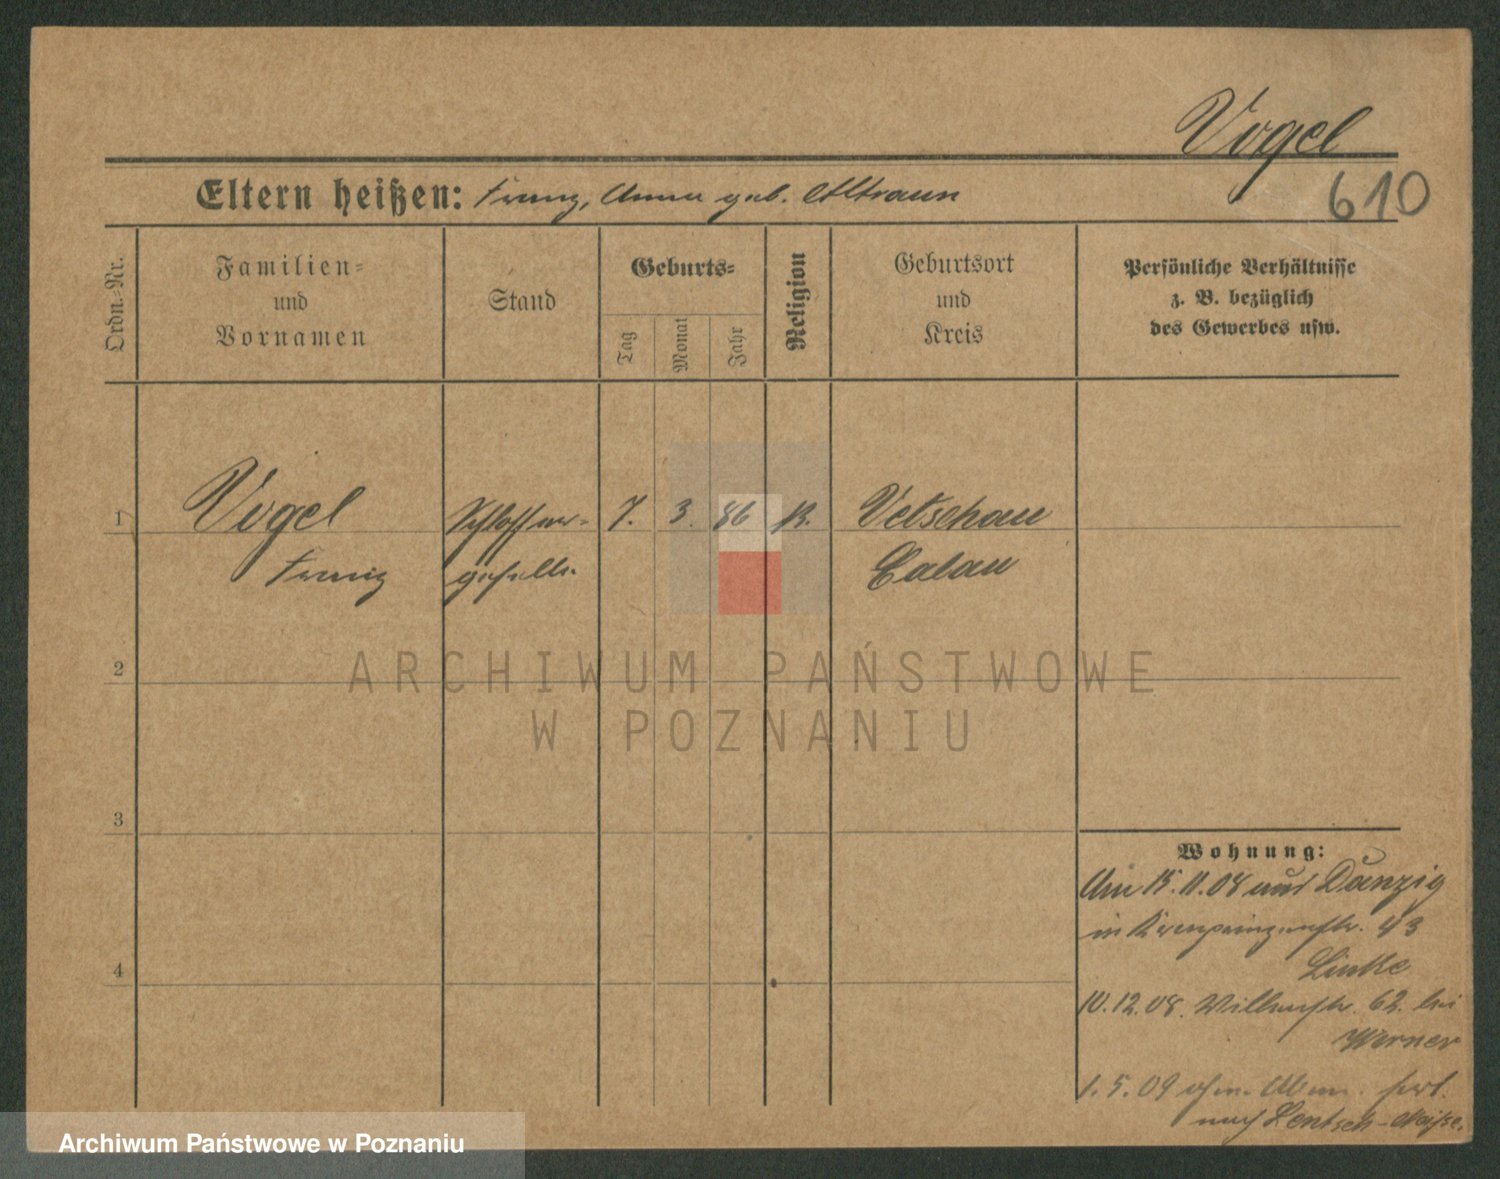 Vogel
Eltern heißen: Franz, Anna geb. Altraun
610
Ordn.-Nr.
Familien-
und
Vornamen
Stand
Geburts-
Tag
Monat
Jahr
Religion
Geburtsort
und
Kreis
Persönliche Verhältnisse
z. B. bezüglich
des Gewerbes usw.
1
Vogel
Franz
Schlosser-
geselle
7.
3.
86
k.
Vetschau
Calau
2
3
4
Wohnung:
Am 15.11.08 aus Danzig
in Kronprinzenstr. 43
Linke
10.12.08. Willenstr. 62. bei
Werner
1.5.09 ohne Abm. fort.
nach Lentsch-Neisse.
ARCHIWUM PAŃSTWOWE
W POZNANIU
Archiwum Państwowe w Poznaniu